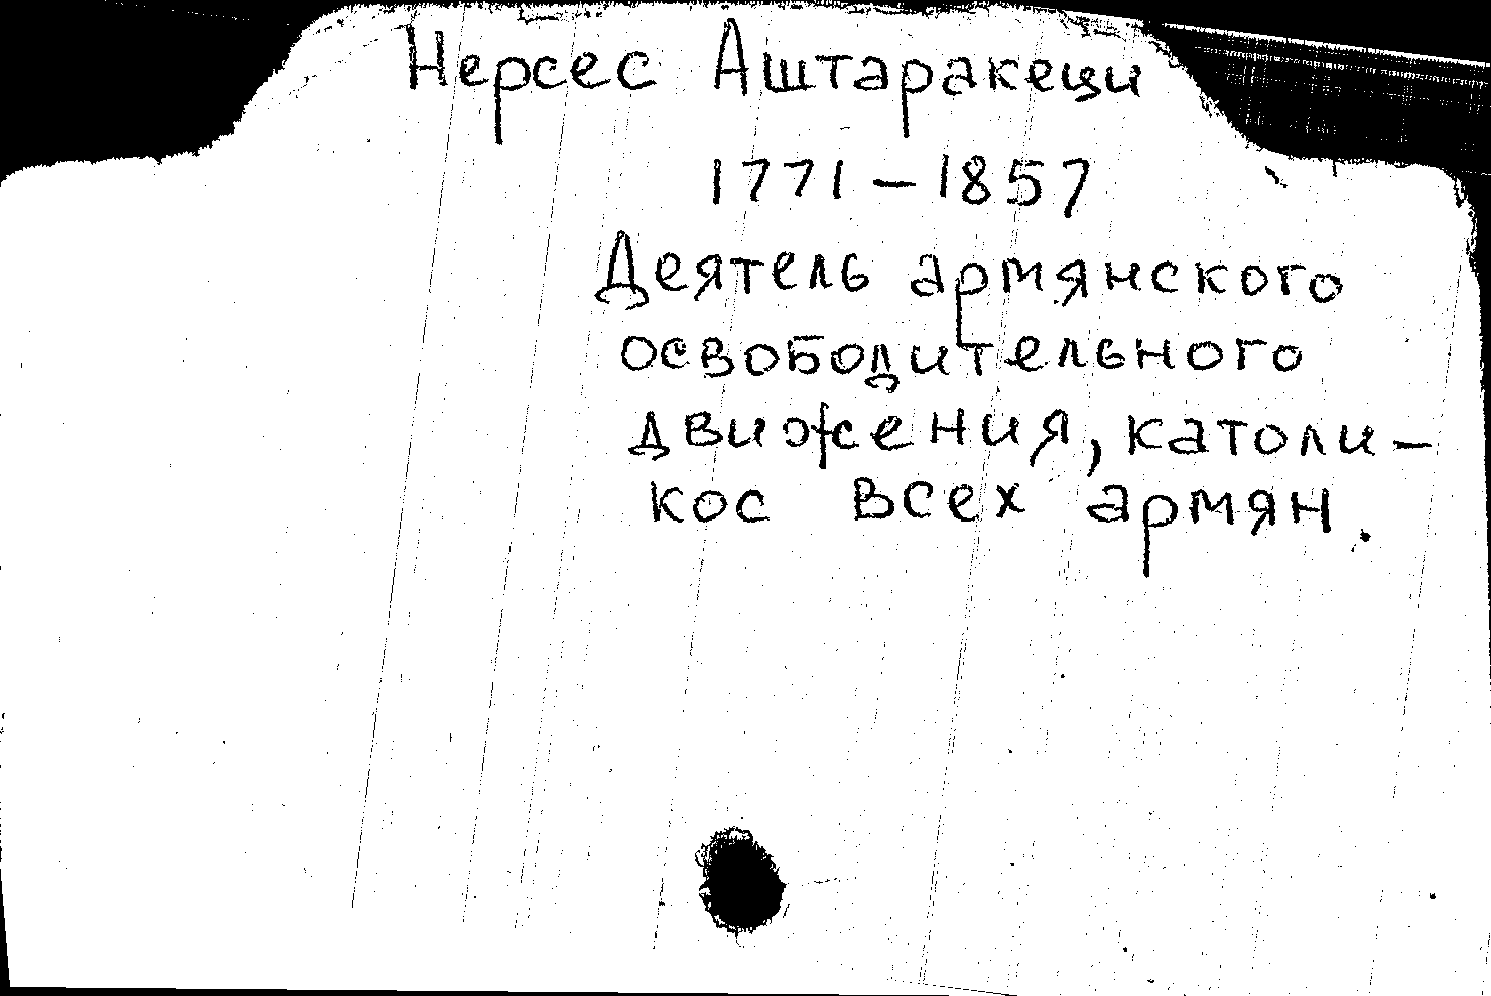 Нерсес Аштаракеци
1771 – 1857
Деятель армянского
освободительного
движения, католи-
кос всех армян.